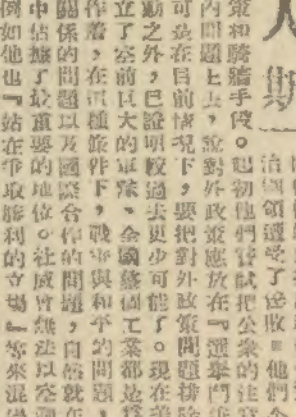 人
期
領遭受了挫敗。他們
策和騎牆手段。起初他們嘗試把公衆的注
內問題上去,說對外政策應放在『選舉鬥
可是在目前情況下,要把對外政策問題排
動之外,已證明較過去更少可能了。現在
立了空前巨大的軍隊、全國整個工業都是
作着,在這種條件下,戰爭與和平的問題,
關係的問題以及國際合作的問題,自然就在
中佔據了最重要的地位。杜威曾無法以空
例如他也『站在爭取勝利的立場』等來混